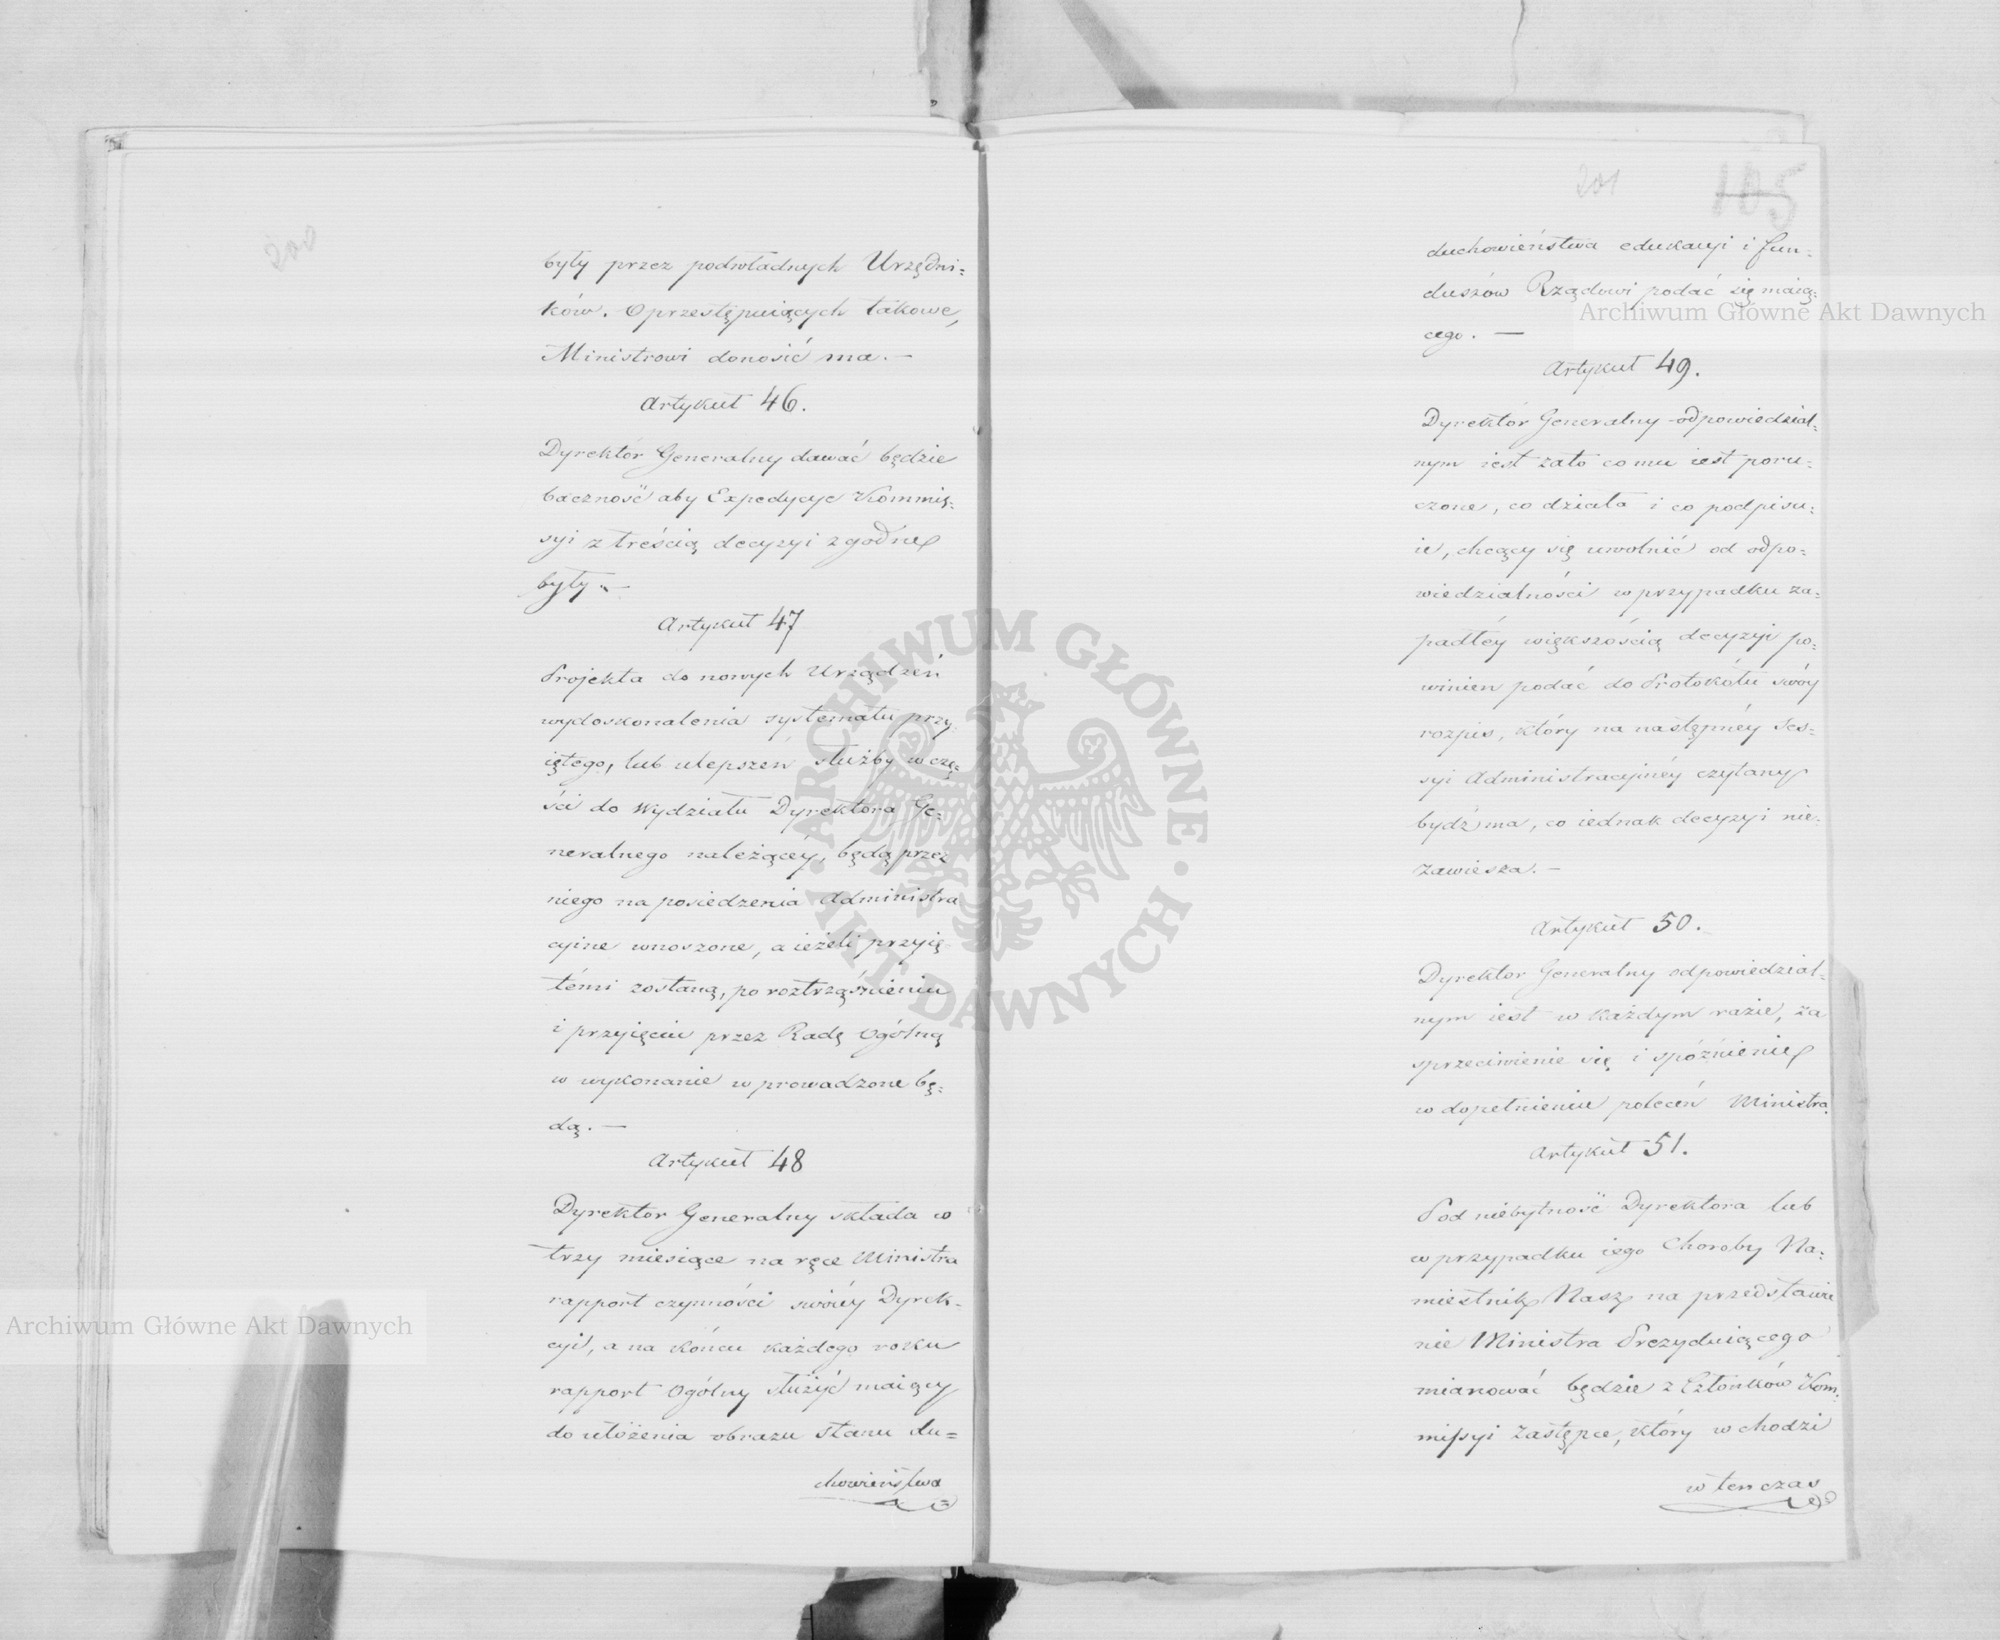 200
były przez podwładnych Urzędni=
ków. O przestępuiących takowe,
Ministrowi donosić ma. —
Artykuł 46.
Dyrektór Generalny dawać będzie
baczność aby Expedycye Kommis=
syi z treścią decyzyi zgodne
były. —
Artykuł 47
Projekta do nowych Urządzeń
wydoskonalenia systematu przy=
iętego, lub ulepszeń służby w czę=
ści do Wydziału Dyrektora Ge=
neralnego należącey, będą przez
niego na posiedzenia Administra
cyine wnoszone, a ieżeli przyię
témi zostaną, po roztrząśnieniu
i przyięciu przez Radę Ogólną
w wykonanie wprowadzone bę=
dą. —
Artykuł 48
Dyrektor Generalny składa w
trzy miesiące na ręce Ministra
rapport czynności swóiéy Dyrek=
cyi, a na końcu każdego roku
rapport Ogólny służyć maiący
do ułożenia obrazu stanu du=
chowieństwa
201
105
duchowieństwa edukacyi i fun=
duszów Rządowi podać się maią=
cego. —
Artykuł 49.
Dyrektór Generalny odpowiedzial=
nym iest za to co mu iest poru=
czone, co działa i co podpisu=
ie, chcący się uwolnić od odpo=
wiedzialności w przypadku za=
padłéy większością decyzyi po=
winien podać do Protokółu swóy
rozpis, który na następnéy Ses=
syi Administracyinéy czytany
bydź ma, co iednak decyzyi nie=
zawiesza. —
Artykuł 50.
Dyrektor Generalny odpowiedzial=
nym iest w każdym razie, za
sprzeciwienie się i spóźnienie
w dopełnieniu poleceń Ministra.
Artykuł 51.
Pod niebytność Dyrektora lub
w przypadku iego Choroby Na=
miestnik Nasz na przedstawie
nie Ministra Prezyduiącego
mianować będzie z Członków Kom=
missyi Zastępce, który wchodzi
wtenczas
Archiwum Główne Akt Dawnych
Archiwum Główne Akt Dawnych
· ARCHIWUM GŁÓWNE · AKT DAWNYCH